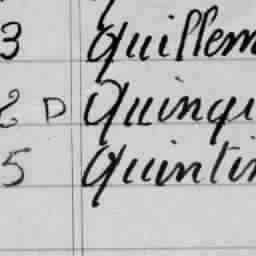 3 Quillem
2 D Quinqu
5 Quintin